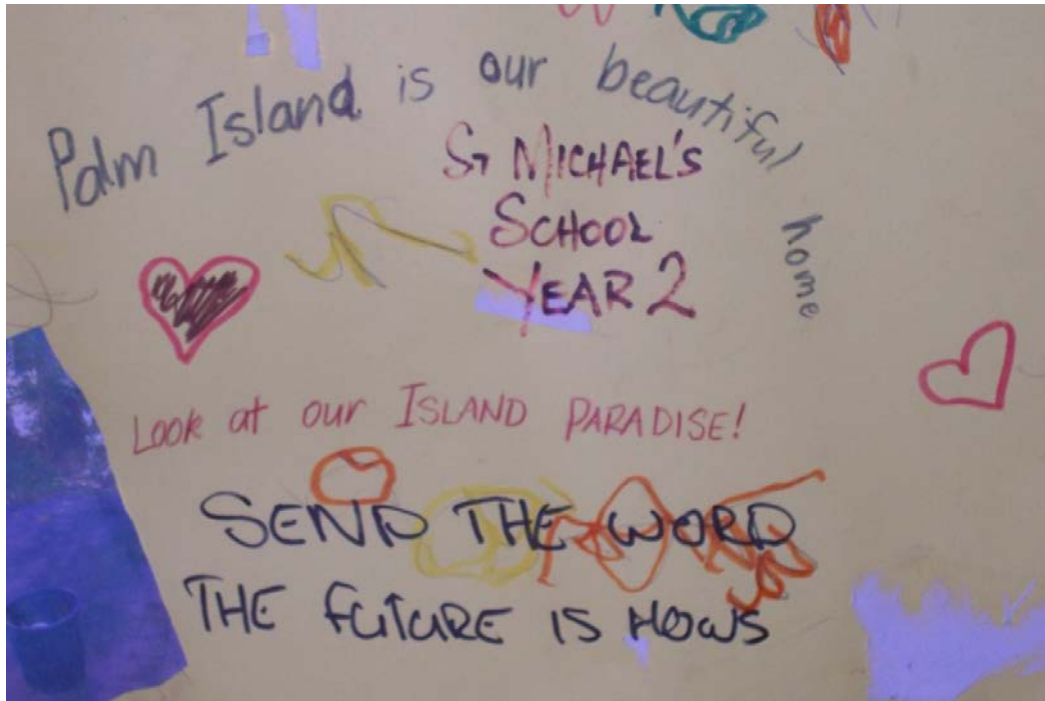 Palm Island is our beautiful home
ST MICHAEL'S
SCHOOL
YEAR 2
Look at our ISLAND PARADISE!
SEND THE WORD
THE FUTURE IS